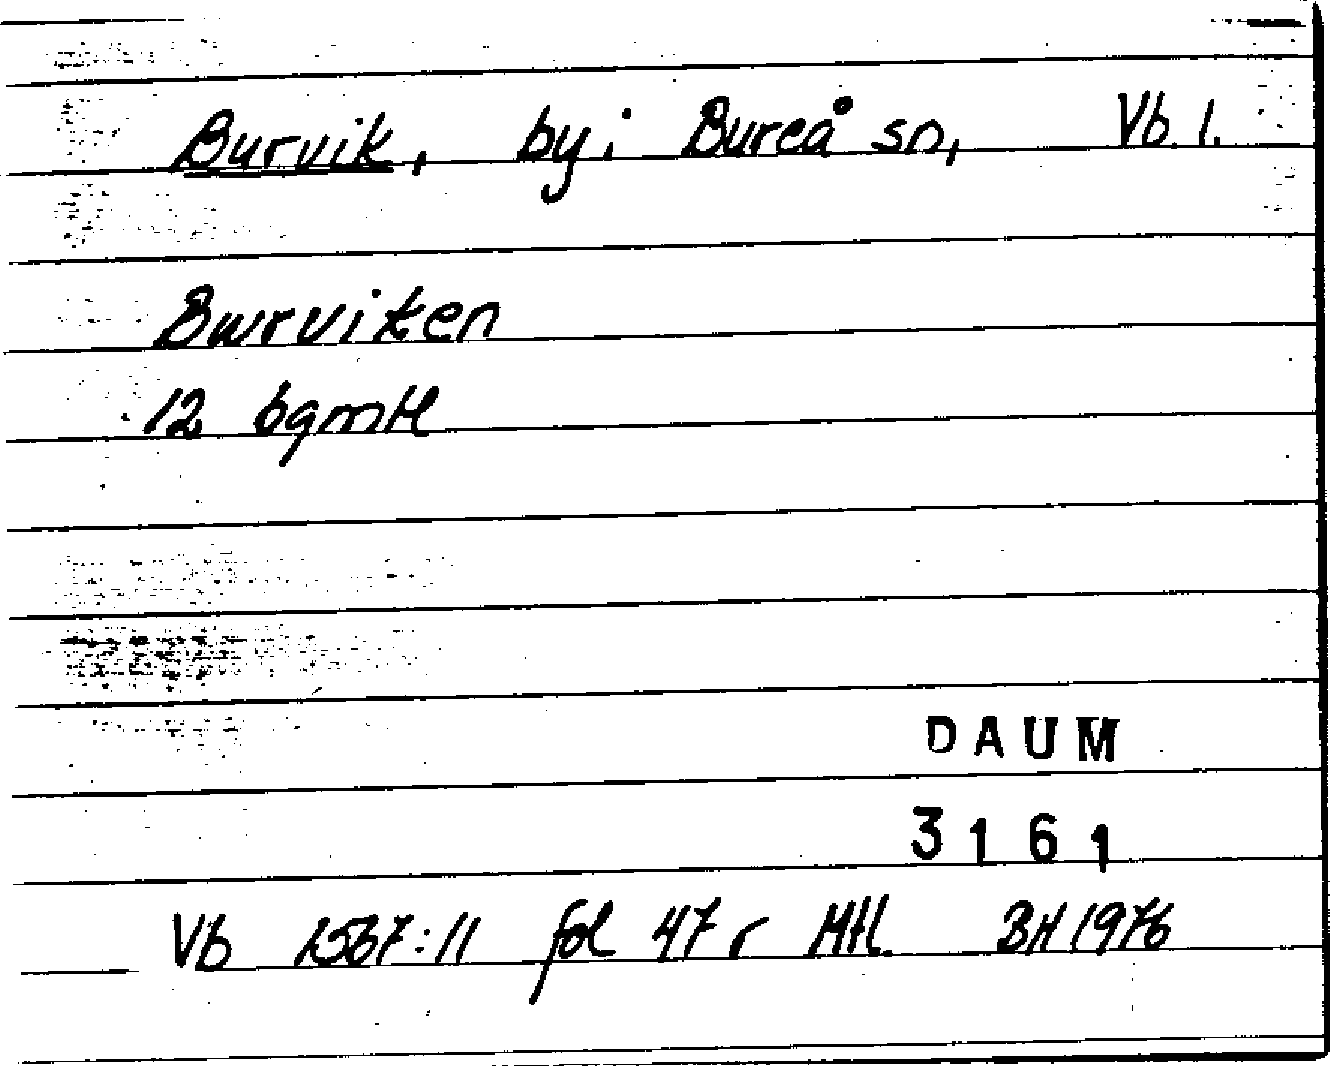 Burvik, by; Bureå sn, Vb. l.
Bwrviken
12 bgmtl
DAUM
3161
Vb 1567:11 fol 47 r MH. BH 1976